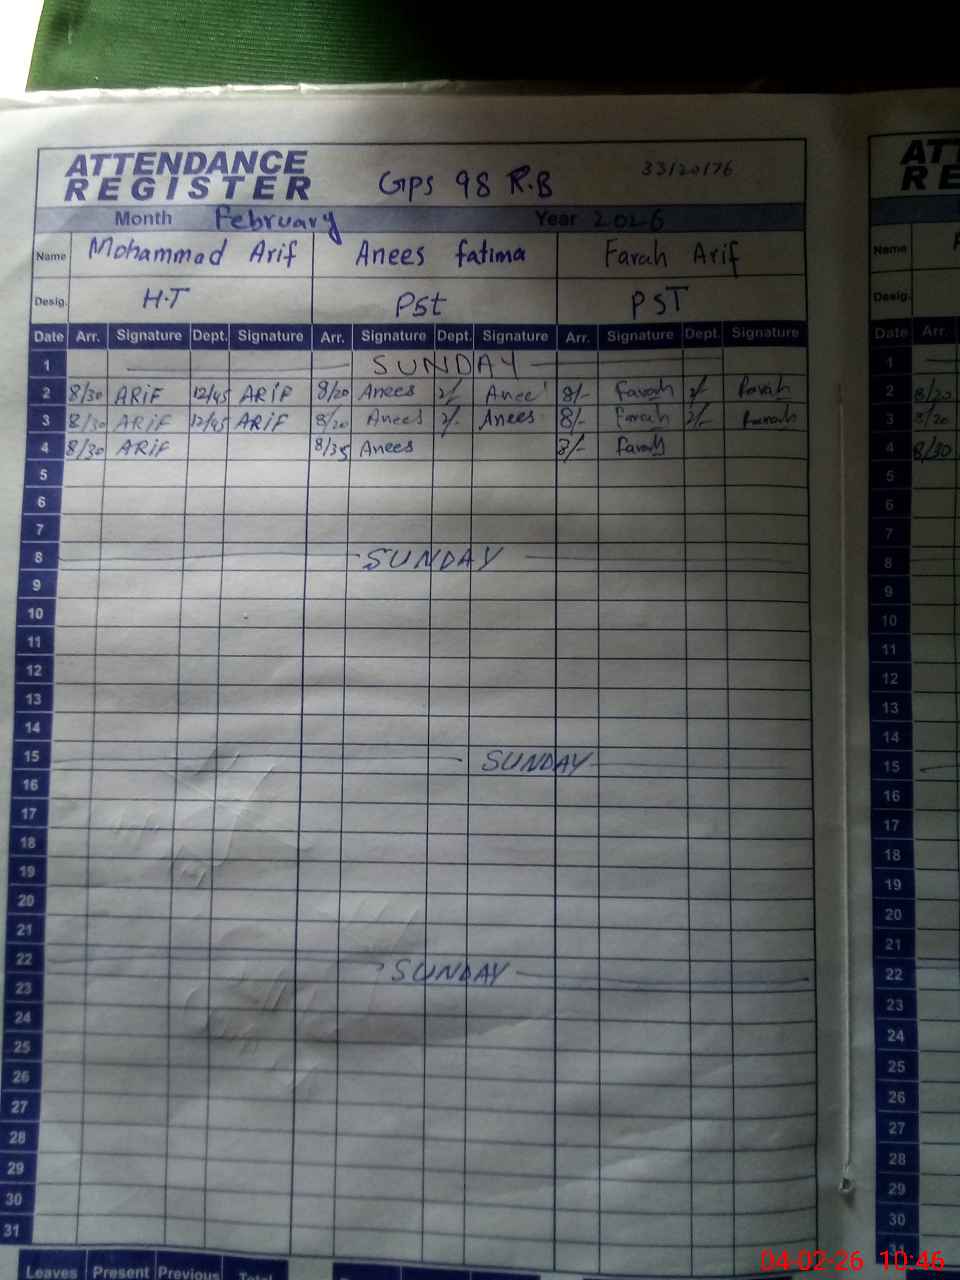 ATTENDANCE
REGISTER
GPS 98 R.B
33120176
Month February Year 2026
Name Mohammad Arif Anees fatima Farah Arif
Desig. H.T PST PST
Date Arr. Signature Dept. Signature Arr. Signature Dept. Signature Arr. Signature Dept. Signature
1 SUNDAY
2 8/30 ARiF 12/45 ARiF 8/20 Anees 2/- Anees 8/- Farah 2/- Farah
3 8/30 ARiF 12/45 ARiF 8/20 Anees 2/- Anees 8/- Farah 2/- Farah
4 8/30 ARiF 8/35 Anees 8/- Farah
5
6
7
8 SUNDAY
9
10
11
12
13
14
15 SUNDAY
16
17
18
19
20
21
22 SUNDAY
23
24
25
26
27
28
29
30
31
Leaves Present Previous Total
Name
Desig.
Date Arr.
1
2 8/20
3 8/20
4 8/30
5
6
7
8
9
10
11
12
13
14
15
16
17
18
19
20
21
22
23
24
25
26
27
28
29
30
31
04-02-26 10:46